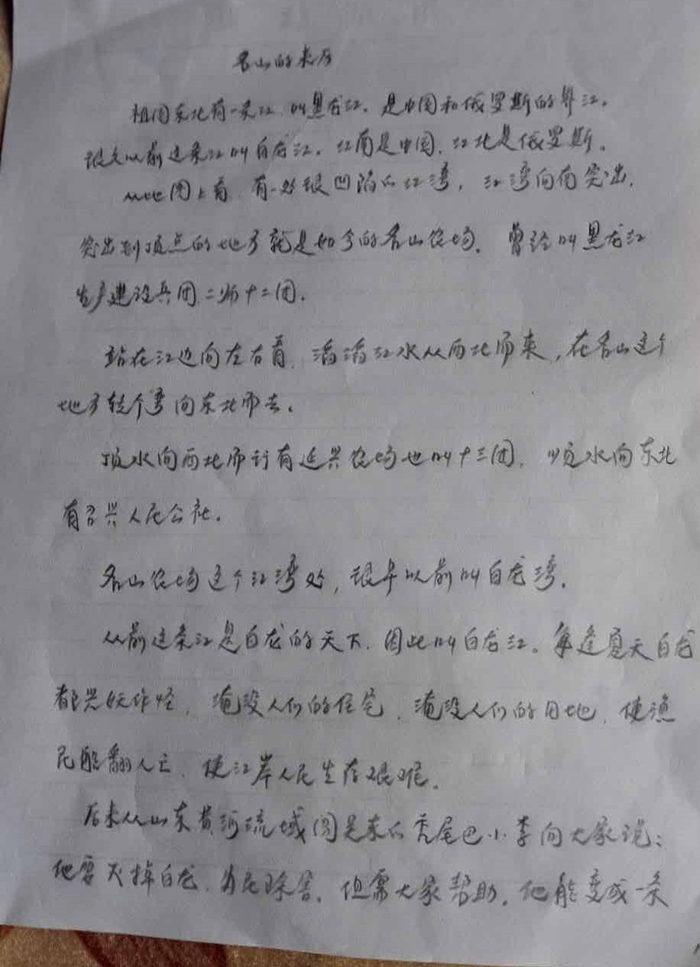 名山的来历
祖国东北有一条江,叫黑龙江。是中国和俄罗斯的界江。
很久以前这条江叫白龙江。江南是中国,江北是俄罗斯。
从地图上看,有一处很凹陷的江湾,江湾向南突出,
突出到顶点的地方就是如今的名山农场。曾经叫黑龙江
生产建设兵团二师十二团。
站在江边向左右看,滔滔江水从西北而来,在名山这个
地方转个弯向东北而去。
顶水向西北而行有延兴农场也叫十三团,顺水向东北
有名兴人民公社。
名山农场这个江湾处,很早以前叫白龙湾。
从前这条江是白龙的天下,因此叫白龙江。每逢夏天白龙
都兴妖作怪,淹没人们的住宅,淹没人们的田地,使渔
民船翻人亡,使江岸人民生存艰难。
后来从山东黄河流域闯过来的秃尾巴小李向大家说:
他要灭掉白龙,为民除害,但需大家帮助,他能变成一条